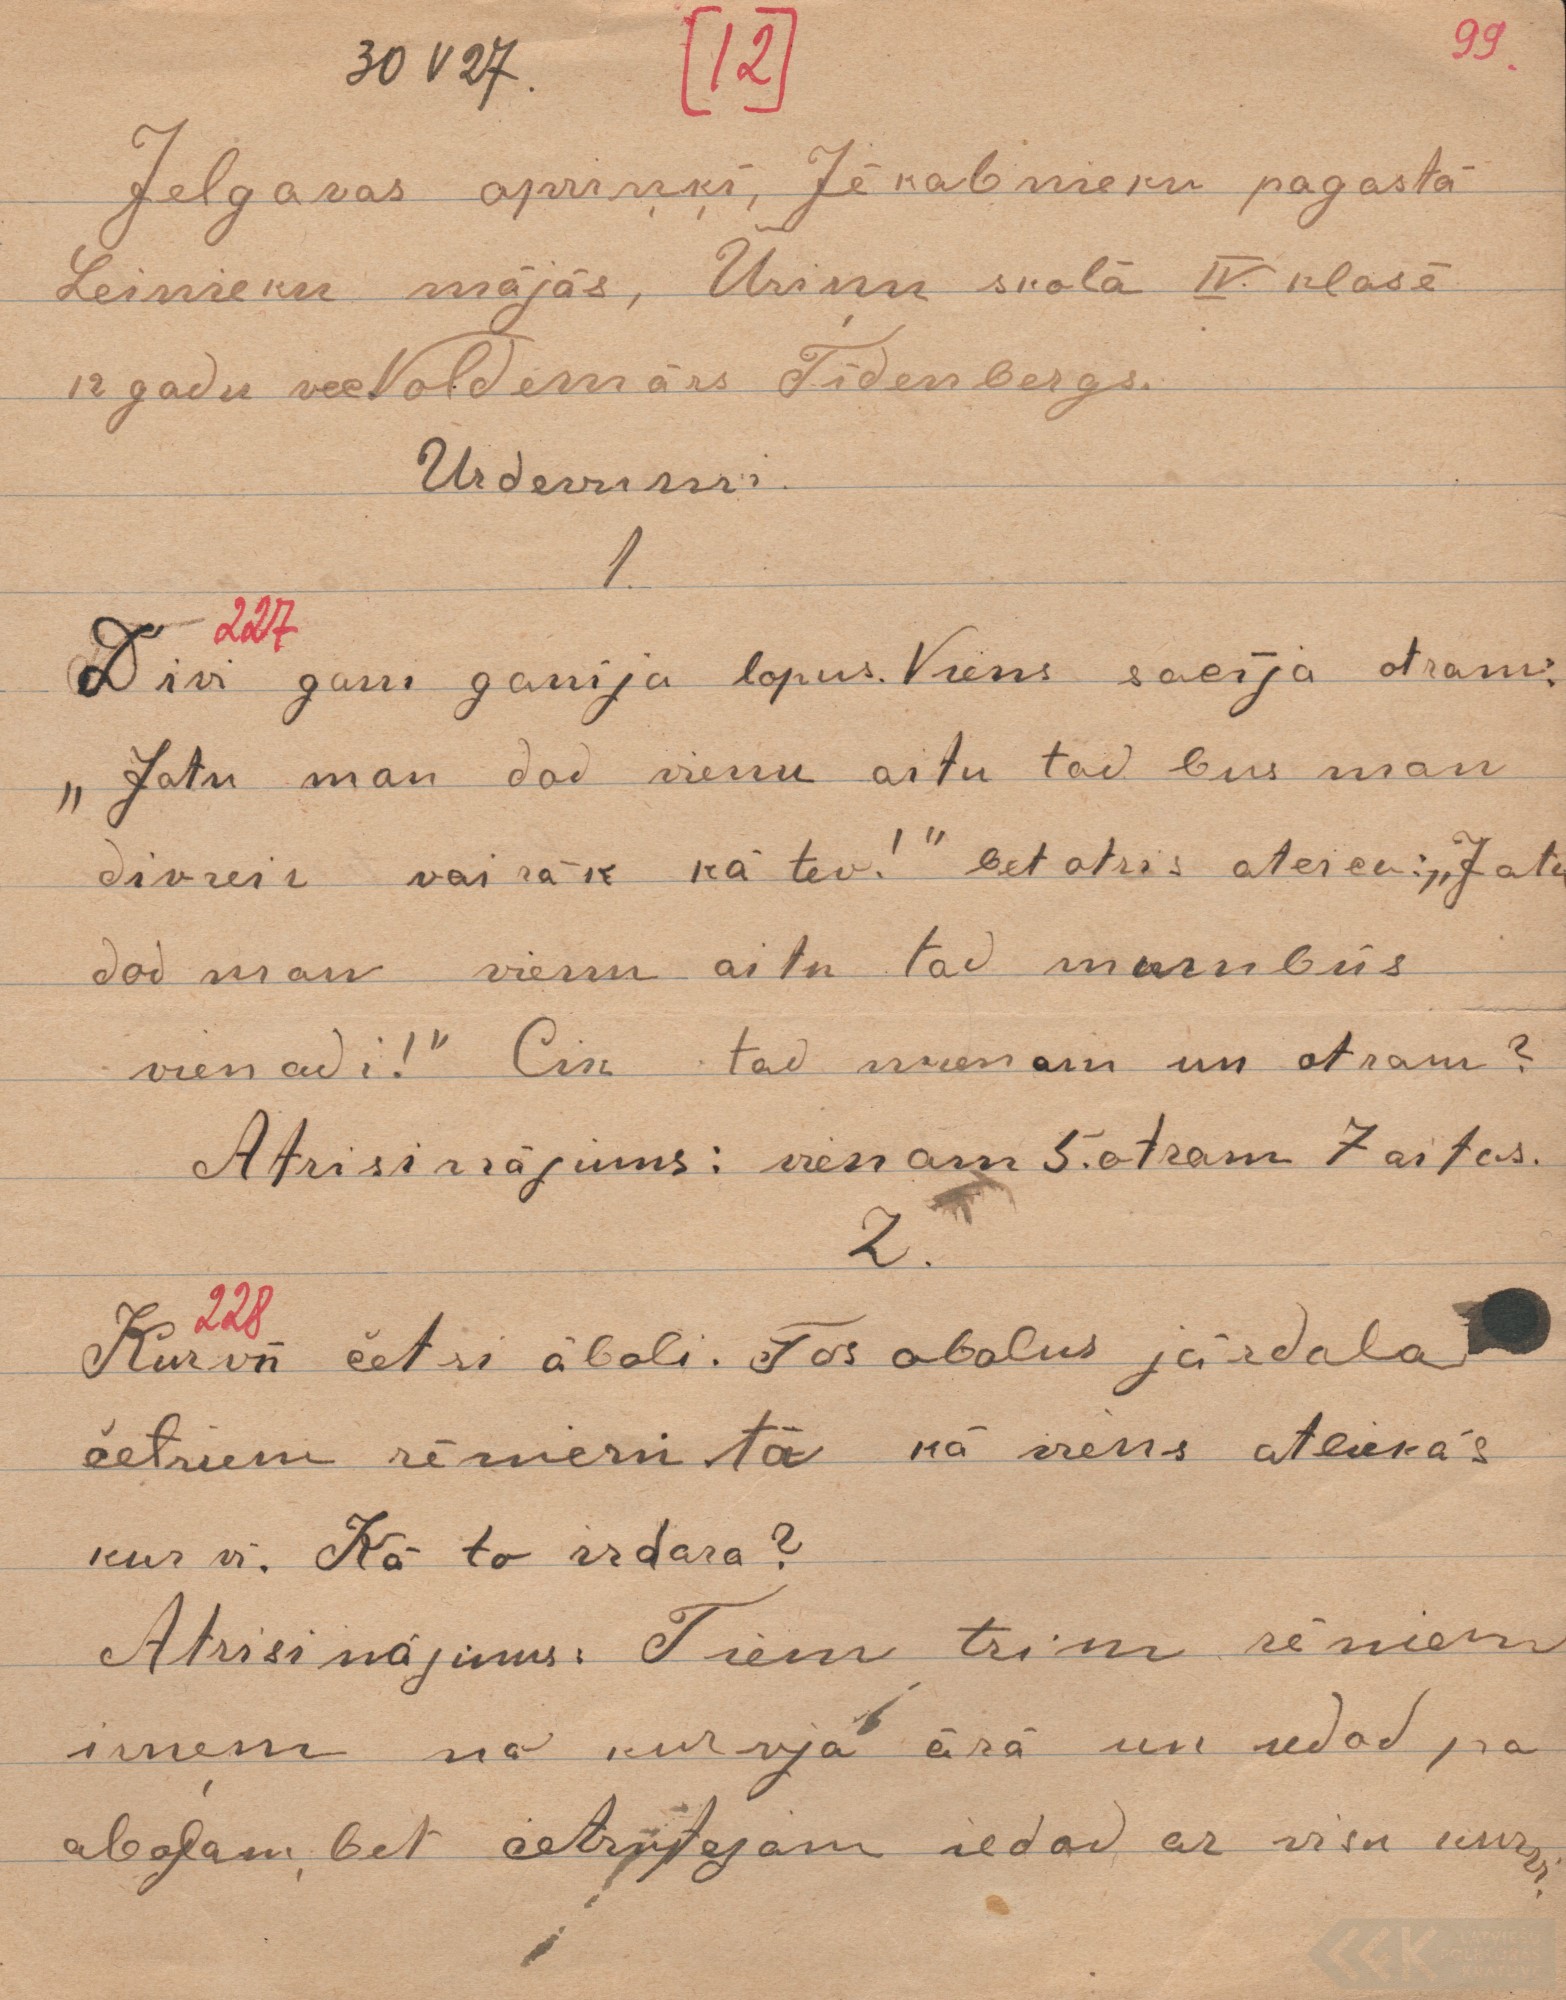 30 V 27. [12] 99.
Jelgavas apriņķī, Jēkabnieku pagastā
Leinieku mājās, Ūziņu skolā IV. klasē
12 gadu vec Voldemārs Tīdenbergs.
Uzdevumi.
1.
227
Divi gani ganīja lopus. Viens sacīja otram:
„Ja tu man dod vienu aitu tad bus man
divreiz vairāk kā tev!" bet otris ateica: „Ja tu
dod man vienu aitu tad mumbūs
vienadi!" Cik tad vienam un otram?
Atrisinājums: vienam 5. otram 7 aitas.
2.
228
Kurvī četri āboli. Tos abolus jāzdala
četriem zēniem tā kā viens atliekās
kurvī. Kā to izdara?
Atrisinājums: Tiem trim zēniem
izņem no kurvja ārā un iedod pa
abolam, bet četrujtajam iedod ar visu kurvi.